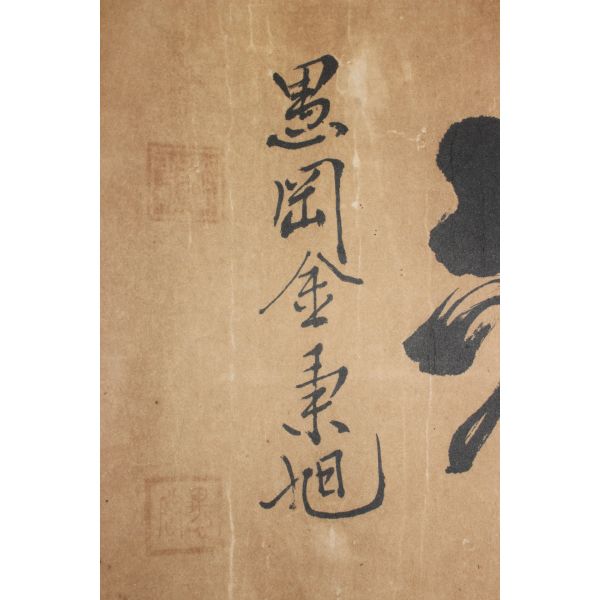 愚岡金秉旭